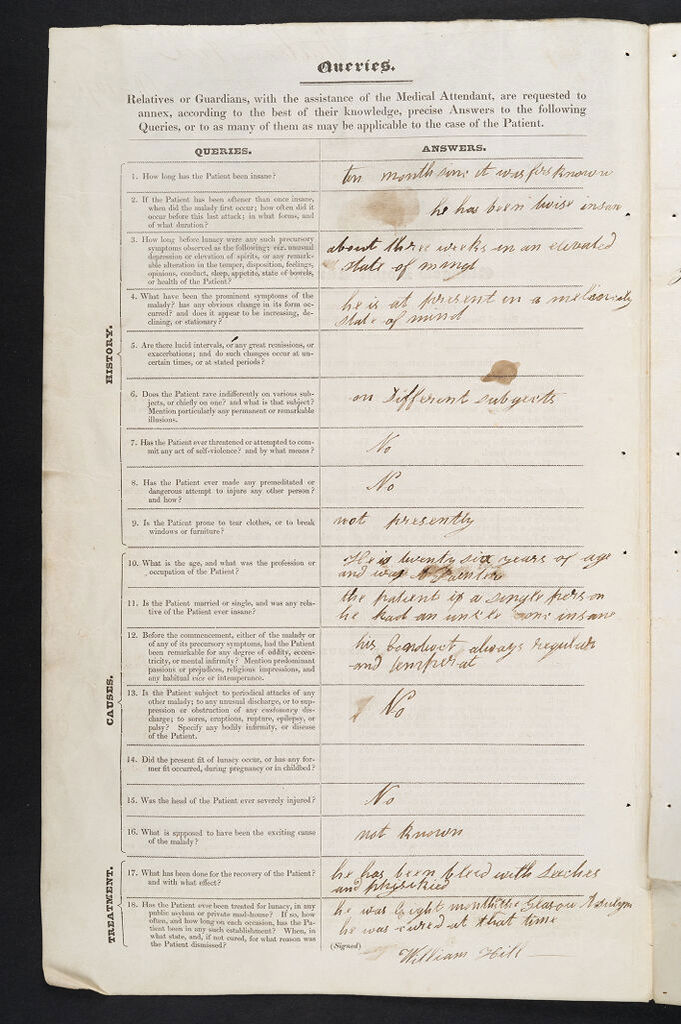 Queries.
Relatives or Guardians, with the assistance of the Medical Attendant, are requested to
annex, according to the best of their knowledge, precise Answers to the following
Queries, or to as many of them as may be applicable to the case of the Patient.
QUERIES.
ANSWERS.
HISTORY.
1. How long has the Patient been insane?
ten month sinc it was firs known
2. If the Patient has been oftener than once insane,
when did the malady first occur; how often did it
occur before this last attack; in what forms, and
of what duration?
he has been twise insane
3. How long before lunacy were any such precursory
symptoms observed as the following: viz. unusual
depression or elevation of spirits, or any remark-
able alteration in the temper, disposition, feelings,
opinions, conduct, sleep, appetite, state of bowels,
or health of the Patient?
about three weeks in an elevated
state of mind
4. What have been the prominent symptoms of the
malady? has any obvious change in its form oc-
curred? and does it appear to be increasing, de-
clining, or stationary?
he is at present in a
state of mind
5. Are there lucid intervals, or any great remissions, or
exacerbations; and do such changes occur at un-
certain times, or at stated periods?
6. Does the Patient rave indifferently on various sub-
jects, or chiefly on one? and what is that subject?
Mention particularly any permanent or remarkable
illusions.
on Different subgects
7. Has the Patient ever threatened or attempted to com-
mit any act of self-violence? and by what means?
No
8. Has the Patient ever made any premeditated or
dangerous attempt to injure any other person?
and how?
No
9. Is the Patient prone to tear clothes, or to break
windows or furniture?
not presently
CAUSES.
10. What is the age, and what was the profession or
occupation of the Patient?
He is twenty six years of age
and was A Painter
11. Is the Patient married or single, and was any rela-
tive of the Patient ever insane?
the patient is a single person
he had an unkle insane
12. Before the commencement, either of the malady or
of any of its precursory symptoms, had the Patient
been remarkable for any degree of oddity, eccen-
tricity, or mental infirmity? Mention predominant
passions or prejudices, religious impressions, and
any habitual vice or intemperance.
his conduct always regular
and temperat
13. Is the Patient subject to periodical attacks of any
other malady; to any unusual discharge, or to sup-
pression or obstruction of any customary dis-
charge; to sores, eruptions, rupture, epilepsy, or
palsy? Specify any bodily infirmity, or disease
of the Patient.
No
14. Did the present fit of lunacy occur, or has any for-
mer fit occurred, during pregnancy or in childbed?
15. Was the head of the Patient ever severely injured?
No
16. What is supposed to have been the exciting cause
of the malady?
not known
TREATMENT.
17. What has been done for the recovery of the Patient?
and with what effect?
he has been bleed with Leeches
and phisicked
18. Has the Patient ever been treated for lunacy, in any
public asylum or private mad-house? If so, how
often, and how long on each occasion, has the Pa-
tient been in any such establishment? When, in
what state, and, if not cured, for what reason was
the Patient dismissed?
he was Eight month Glasow Asulym
he was cured at that time
(Signed)
William Hill